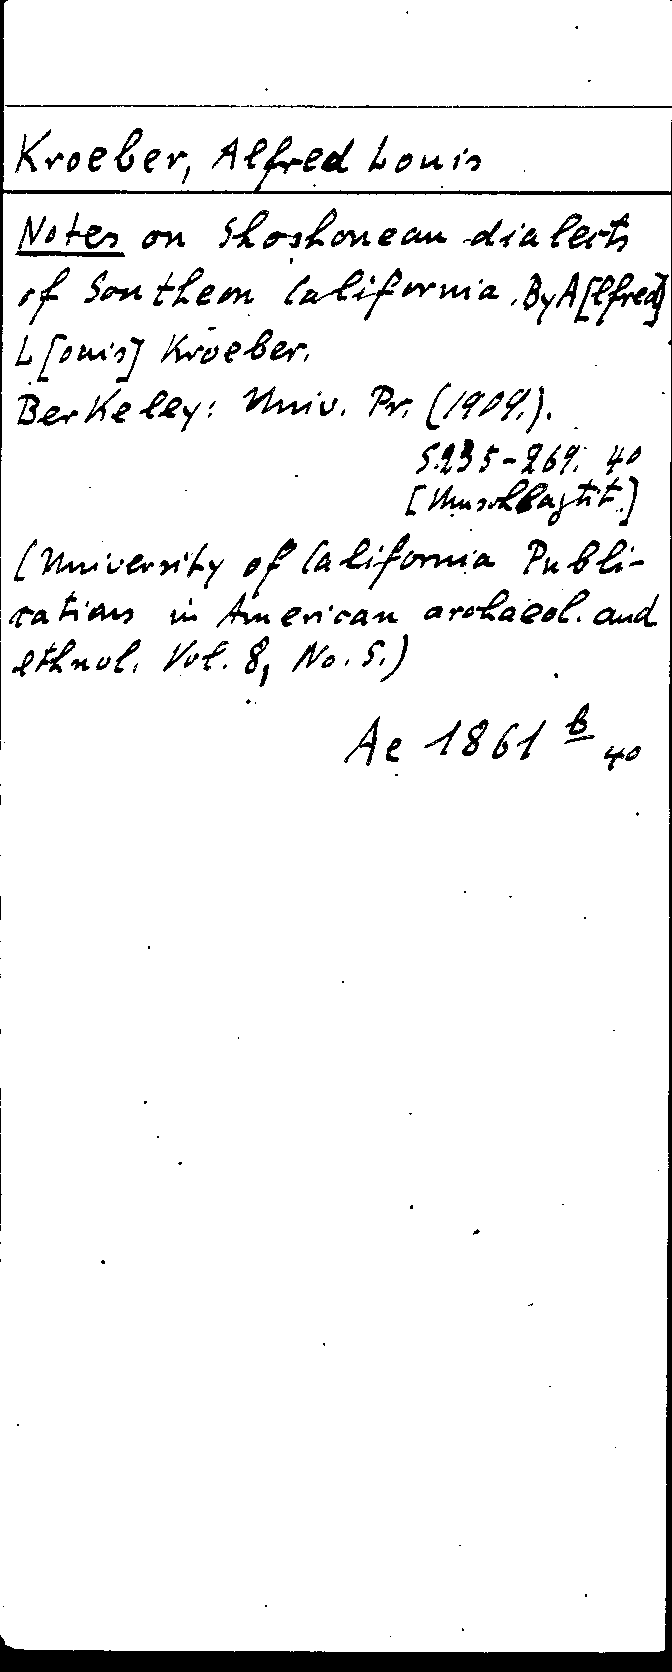 Kroeber, Alfred Louis
Notes on Shoshonean dialects
of Southern California. By A[lfred]
L[ouis] Kroeber.
Berkeley: Univ. Pr. (1909.).
S. 235-269. 4°
[Umschlagtit.]
(University of California Publi-
cations in American archaeol. and
ethnol. Vol. 8, No. 5.)
Ae 1861 b 4°